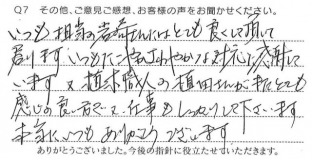 Q7 その他、ご意見ご感想、お客様の声をお聞かせください。
いつも担当の岩斉さんにはとても良くして頂いて
居ります いつもにこやかでさわやかな対応に感謝して
います 又植木職人の植田さんがまたとても
感じの良い方で又、仕事もしっかりして下さいます
本当にいつもありがとうございます
ありがとうございました。今後の指針に役立たせていただきます。